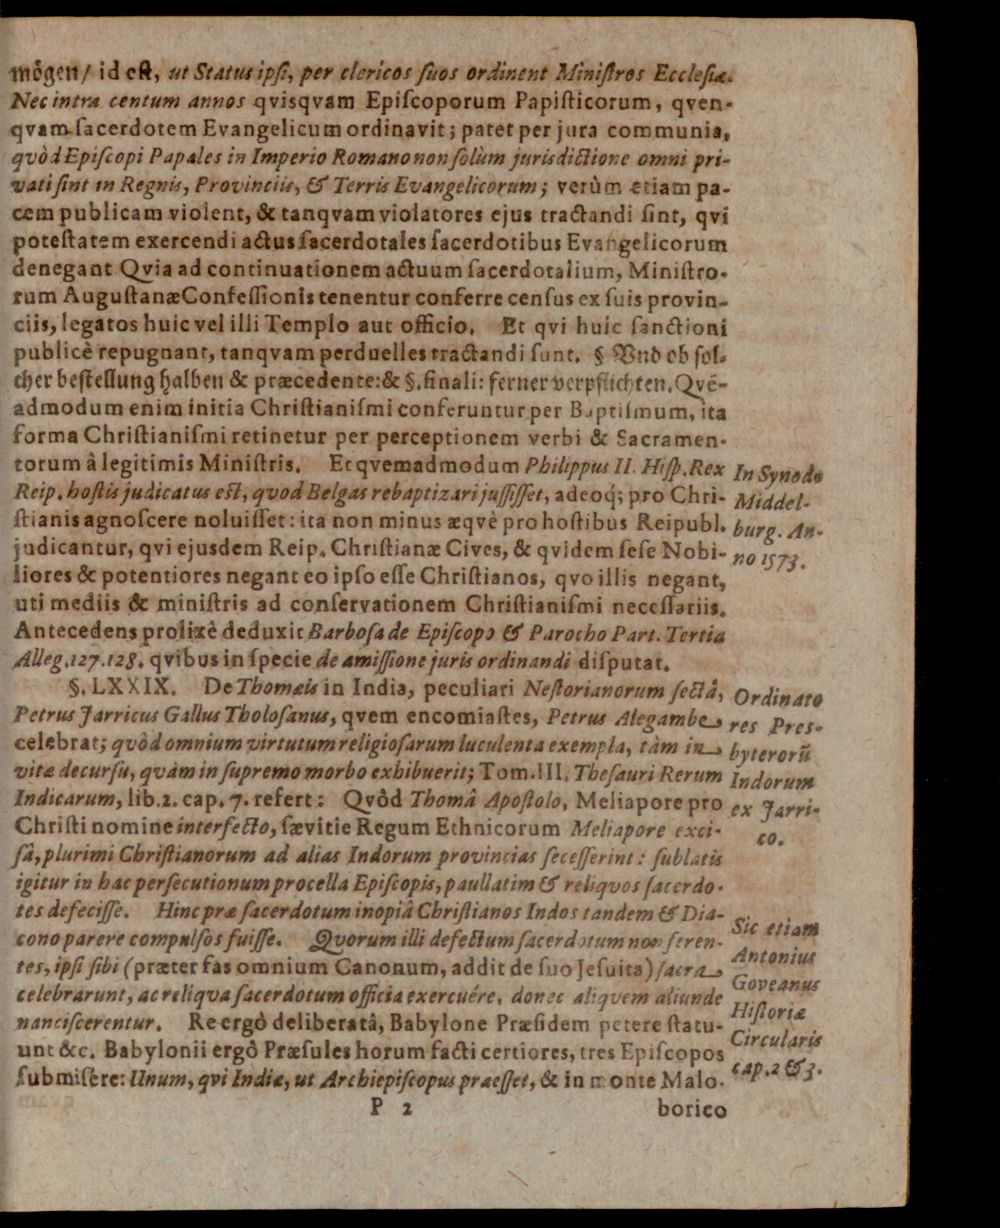 mögen/ id est, ut Status ipsi, per clericos suos ordinent Ministros Ecclesiæ.
Nec intra centum annos qvisqvam Episcoporum Papisticorum, qven-
qvam sacerdotem Evangelicum ordinavit; patet per jura communia,
qvòd Episcopi Papales in Imperio Romano non solùm jurisdictione omni pri-
vati sint in Regnis, Provinciis, & Terris Evangelicorum; verùm etiam pa-
cem publicam violent, & tanqvam violatores ejus tractandi sint, qvi
potestatem exercendi actus sacerdotales sacerdotibus Evangelicorum
denegant Qvia ad continuationem actuum sacerdotalium, Ministro-
rum Augustanæ Confessionis tenentur conferre census ex suis provin-
ciis, legatos huic vel illi Templo aut officio. Et qvi huic sanctioni
publicè repugnant, tanqvam perduelles tractandi sunt. § Vnd ob sol-
cher bestellung halben & præcedente: & §. finali: ferner verpflichten. Qvē-
admodum enim initia Christianismi conferuntur per Baptismum, ita
forma Christianismi retinetur per perceptionem verbi & Sacramen-
torum â legitimis Ministris. Et qvemadmodum Philippus II. Hisp. Rex
Reip. hostis judicatus est, quod Belgas rebaptizari jussisset, adeoq́; pro Chri-
stianis agnoscere noluisset: ita non minus æqvè pro hostibus Reipubl.
judicantur, qvi ejusdem Reip. Christianæ Cives, & qvidem sese Nobi-
liores & potentiores negant eo ipso esse Christianos, qvo illis negant,
uti mediis & ministris ad conservationem Christianismi necessariis.
Antecedens prolixè deduxit Barbosa de Episcopo & Parocho Part. Tertia
Alleg. 127. 128. qvibus in specie de amissione juris ordinandi disputat.
In Synodo
Middel-
burg. An-
no 1573.
§. LXXIX. De Thomæis in India, peculiari Nestorianorum sectâ,
Petrus Jarricus Gallus Tholosanus, qvem encomiastes, Petrus Alegambe
celebrat; qvòd omnium virtutum religiosarum luculenta exempla, tàm in
vitæ decursu, qvàm in supremo morbo exhibuerit; Tom. III. Thesauri Rerum
Indicarum, lib. 2. cap. 7. refert: Qvôd Thomâ Apostolo, Meliapore pro
Christi nomine interfecto, sævitie Regum Ethnicorum Meliapore exci-
sâ, plurimi Christianorum ad alias Indorum provincias secesserint: sublatis
igitur in hac persecutionum procella Episcopis, paullatim & reliqvos sacerdo-
tes defecisse. Hinc præ sacerdotum inopiâ Christianos Indos tandem & Dia-
cono parere compulsos fuisse. Qvorum illi defectum sacerdotum non feren-
tes, ipsi sibi (præter fas omnium Canonum, addit de suo Jesuita) sacra
celebrarunt, ac reliqva sacerdotum officia exercuére, donec aliqvem aliunde
nanciscerentur. Re ergô deliberatâ, Babylone Præsidem petere statu-
unt &c. Babylonii ergô Præsules horum facti certiores, tres Episcopos
submisère: Unum, qvi Indiæ, ut Archiepiscopus præesset, & in monte Malo-
Ordinato
res Pres-
byterorū
Indorum
ex Jarri-
co.
Sic etiam
Antonius
Goveanus
Historiæ
Circularis
cap. 2 & 3.
P 2 borico